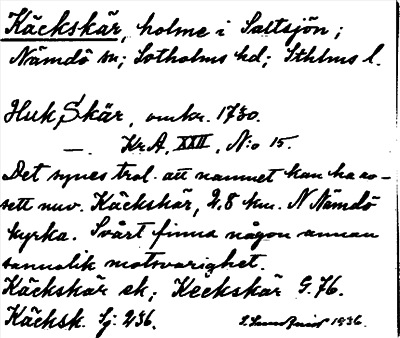 Käckskär, holme i Saltsjön;
Nämdö sn; Sotholms hd; Sthlms l.
Huk Skär, omkr. 1730.
—. Kr.A, XXII, N:o 15.
Det synes trol. att namnet kan ha av-
sett nuv. Käckskär, 2,8 km. N Nämdö
kyrka. Svårt finna någon annan
sannolik motsvarighet.
Käckskär ek; Keckskär G. 76.
Käcksk. Sj: 236. 1936.